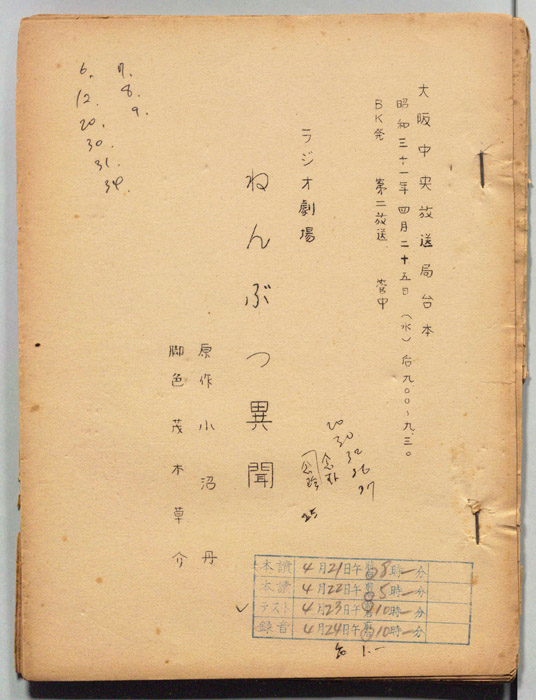 大阪中央放送局台本
昭和三十一年四月二十五日(水)后九.〇〇~九.三〇
BK発 第二放送 管中
ラジオ劇場
ねんぶつ異聞
原作 小沼丹
脚色 茂木草介
6. 7.
12. 8.
20. 9.
30.
31.
34.
20
30
32
26
27
25
本讀 4月21日午後8時一分
本讀 4月22日午後5時一分
テスト 4月23日午前10時一分
録音 4月24日午前10時一分